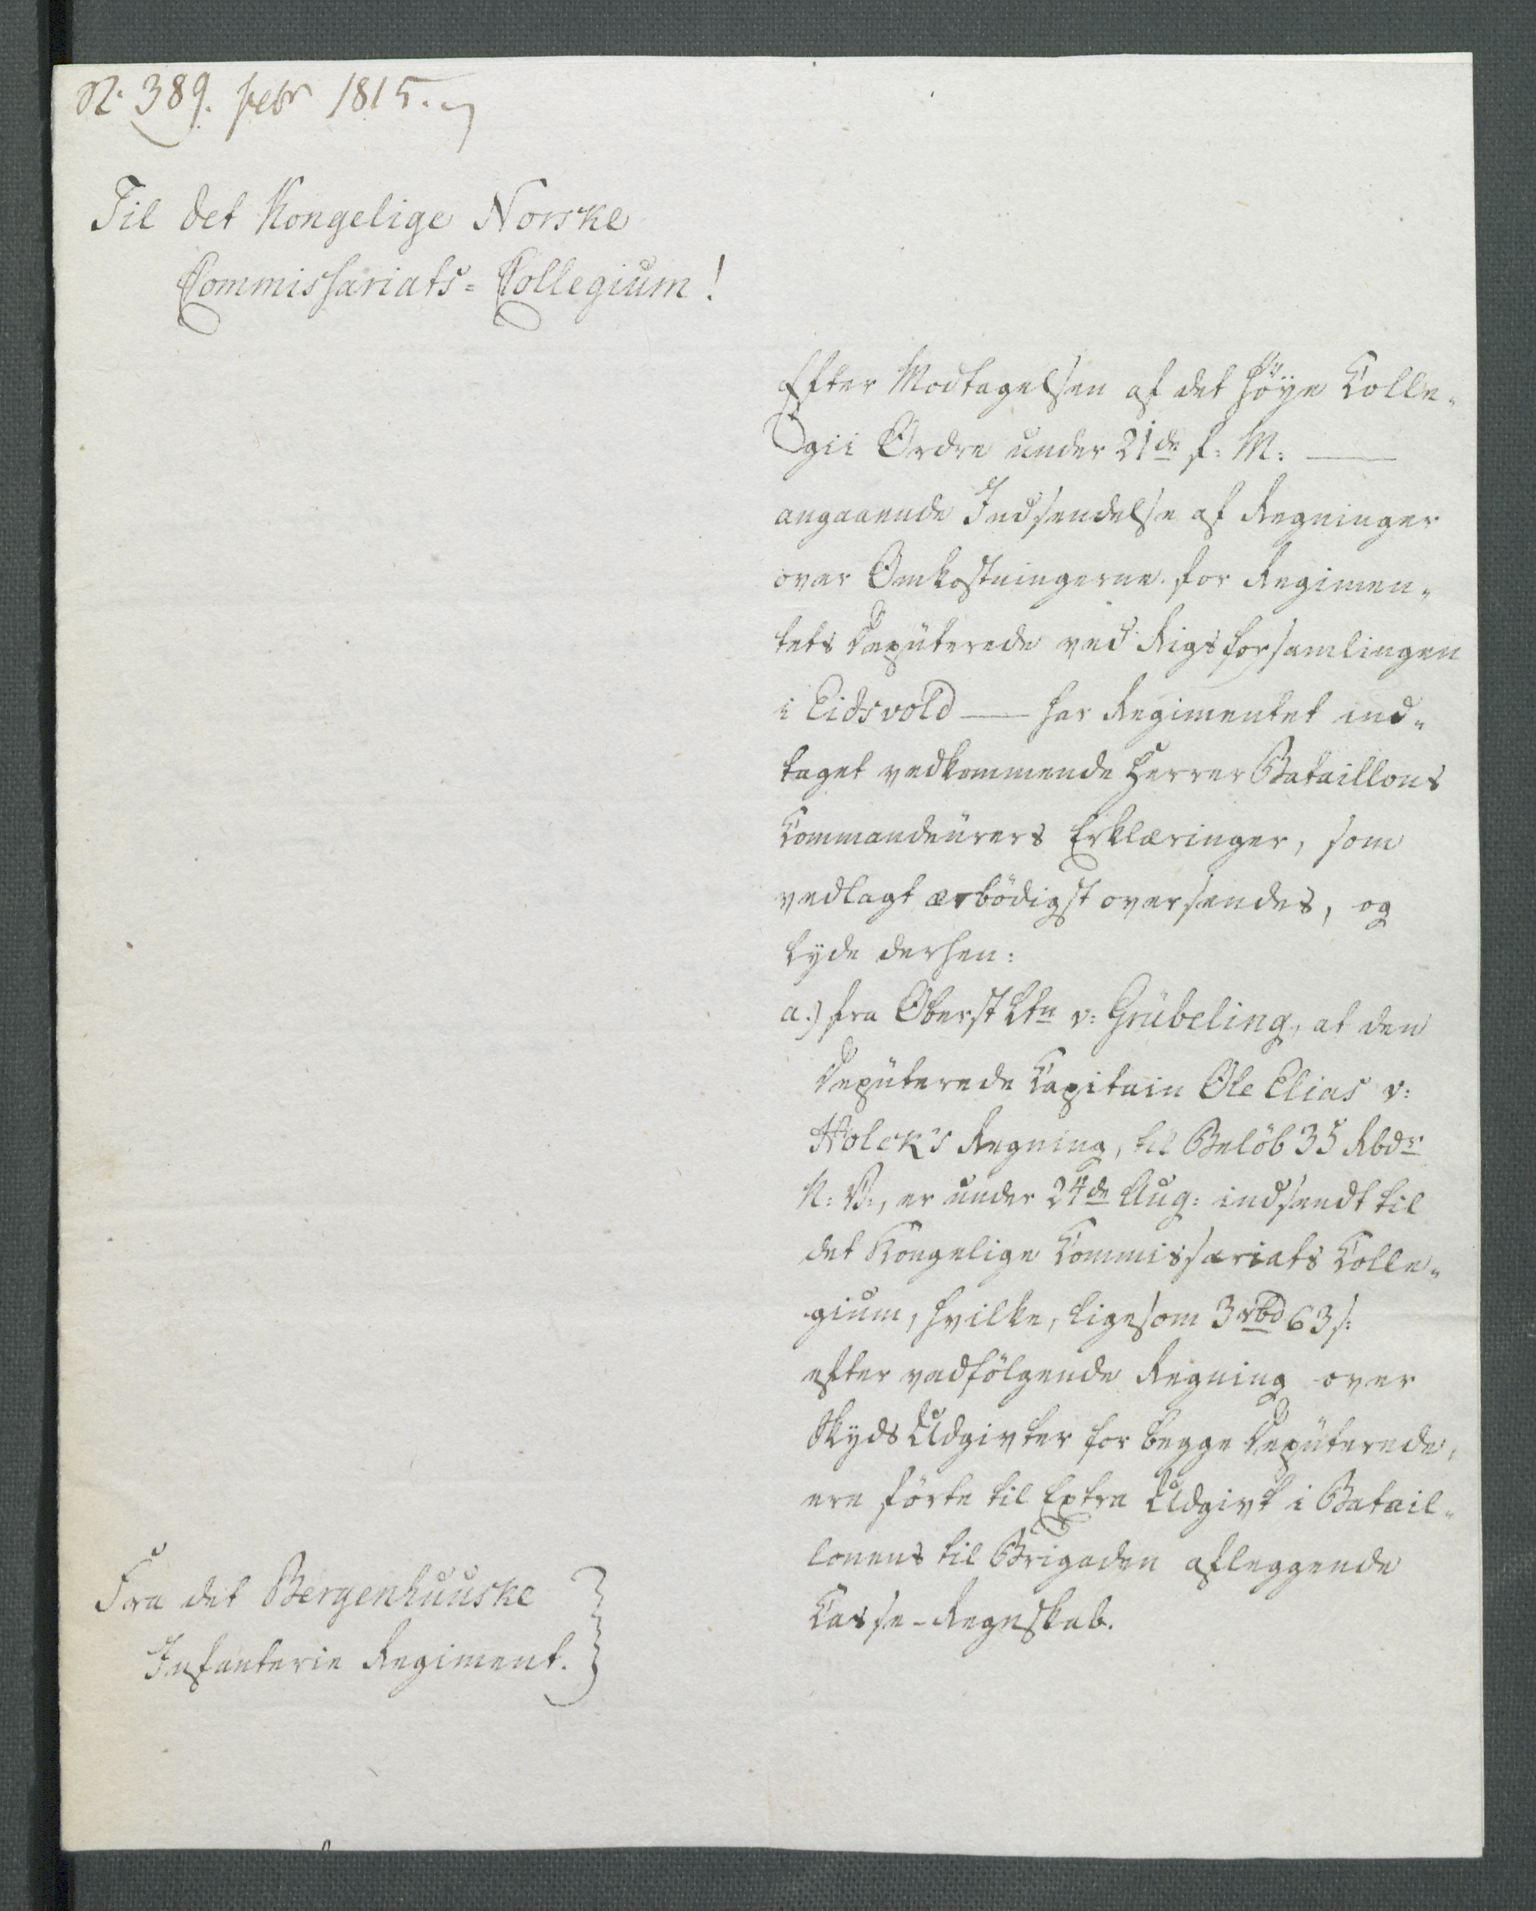 N. 389. febr 1815.
Til det Kongelige Norske
Commissariats= Collegium!
Efter Modtagelsen af det høye Colle-
gii Ordre under 21de f: M: —
angaaende Indsendelse af Regninger
over Omkostningerne for Regimen-
tets Deputerede ved Rigsforsamlingen
i Eidsvold — har Regimentet ind-
taget vedkommende Herrer Bataillons
Commandeurers Erklæringer, som
vedlagt ærbödigst oversendes, og
lyde derhen:
a.) fra Oberst Ltn v: Grübeling, at den
Deputerede Capitain Ole Elias v:
Holck's Regning, til Belöb 35 Rbdr
N: V:, er under 24de Aug: indsendt til
det Kongelige Commissariats Colle-
gium, hvilke, ligesom 3 rbd 63 s:
efter vedfölgende Regning over
Skyds Udgivter for begge Deputerede,
ere förte til Extra Udgivt i Batail-
lonens til Brigaden aflæggende
Casse-Regnskab.
Fra det Bergenhuuske
Infanterie Regiment.